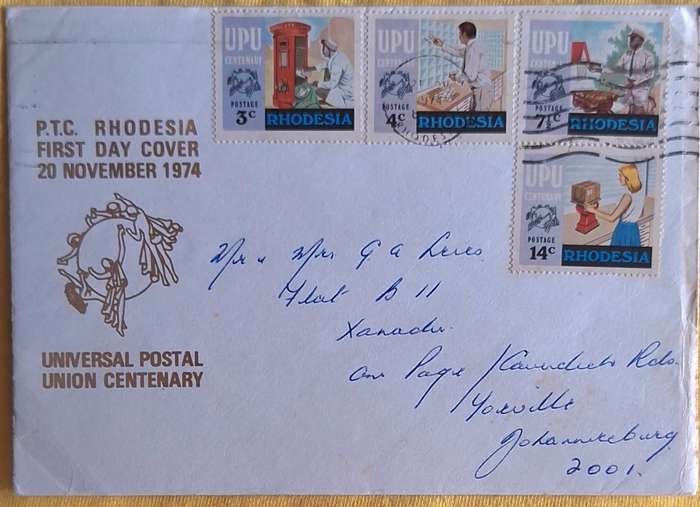 UPU
CENTENARY
POSTAGE
3c
RHODESIA
UPU
CENTENARY
POSTAGE
4c
RHODESIA
UPU
CENTENARY
POSTAGE
7½c
RHODESIA
UPU
CENTENARY
POSTAGE
14c
RHODESIA
P.T.C. RHODESIA
FIRST DAY COVER
20 NOVEMBER 1974
UNIVERSAL POSTAL
UNION CENTENARY
Mr & Mrs G A
Flat B 11
Xanadu.
Cnr Page / Cavendish Rds
Yeoville
Johannesburg
2001.